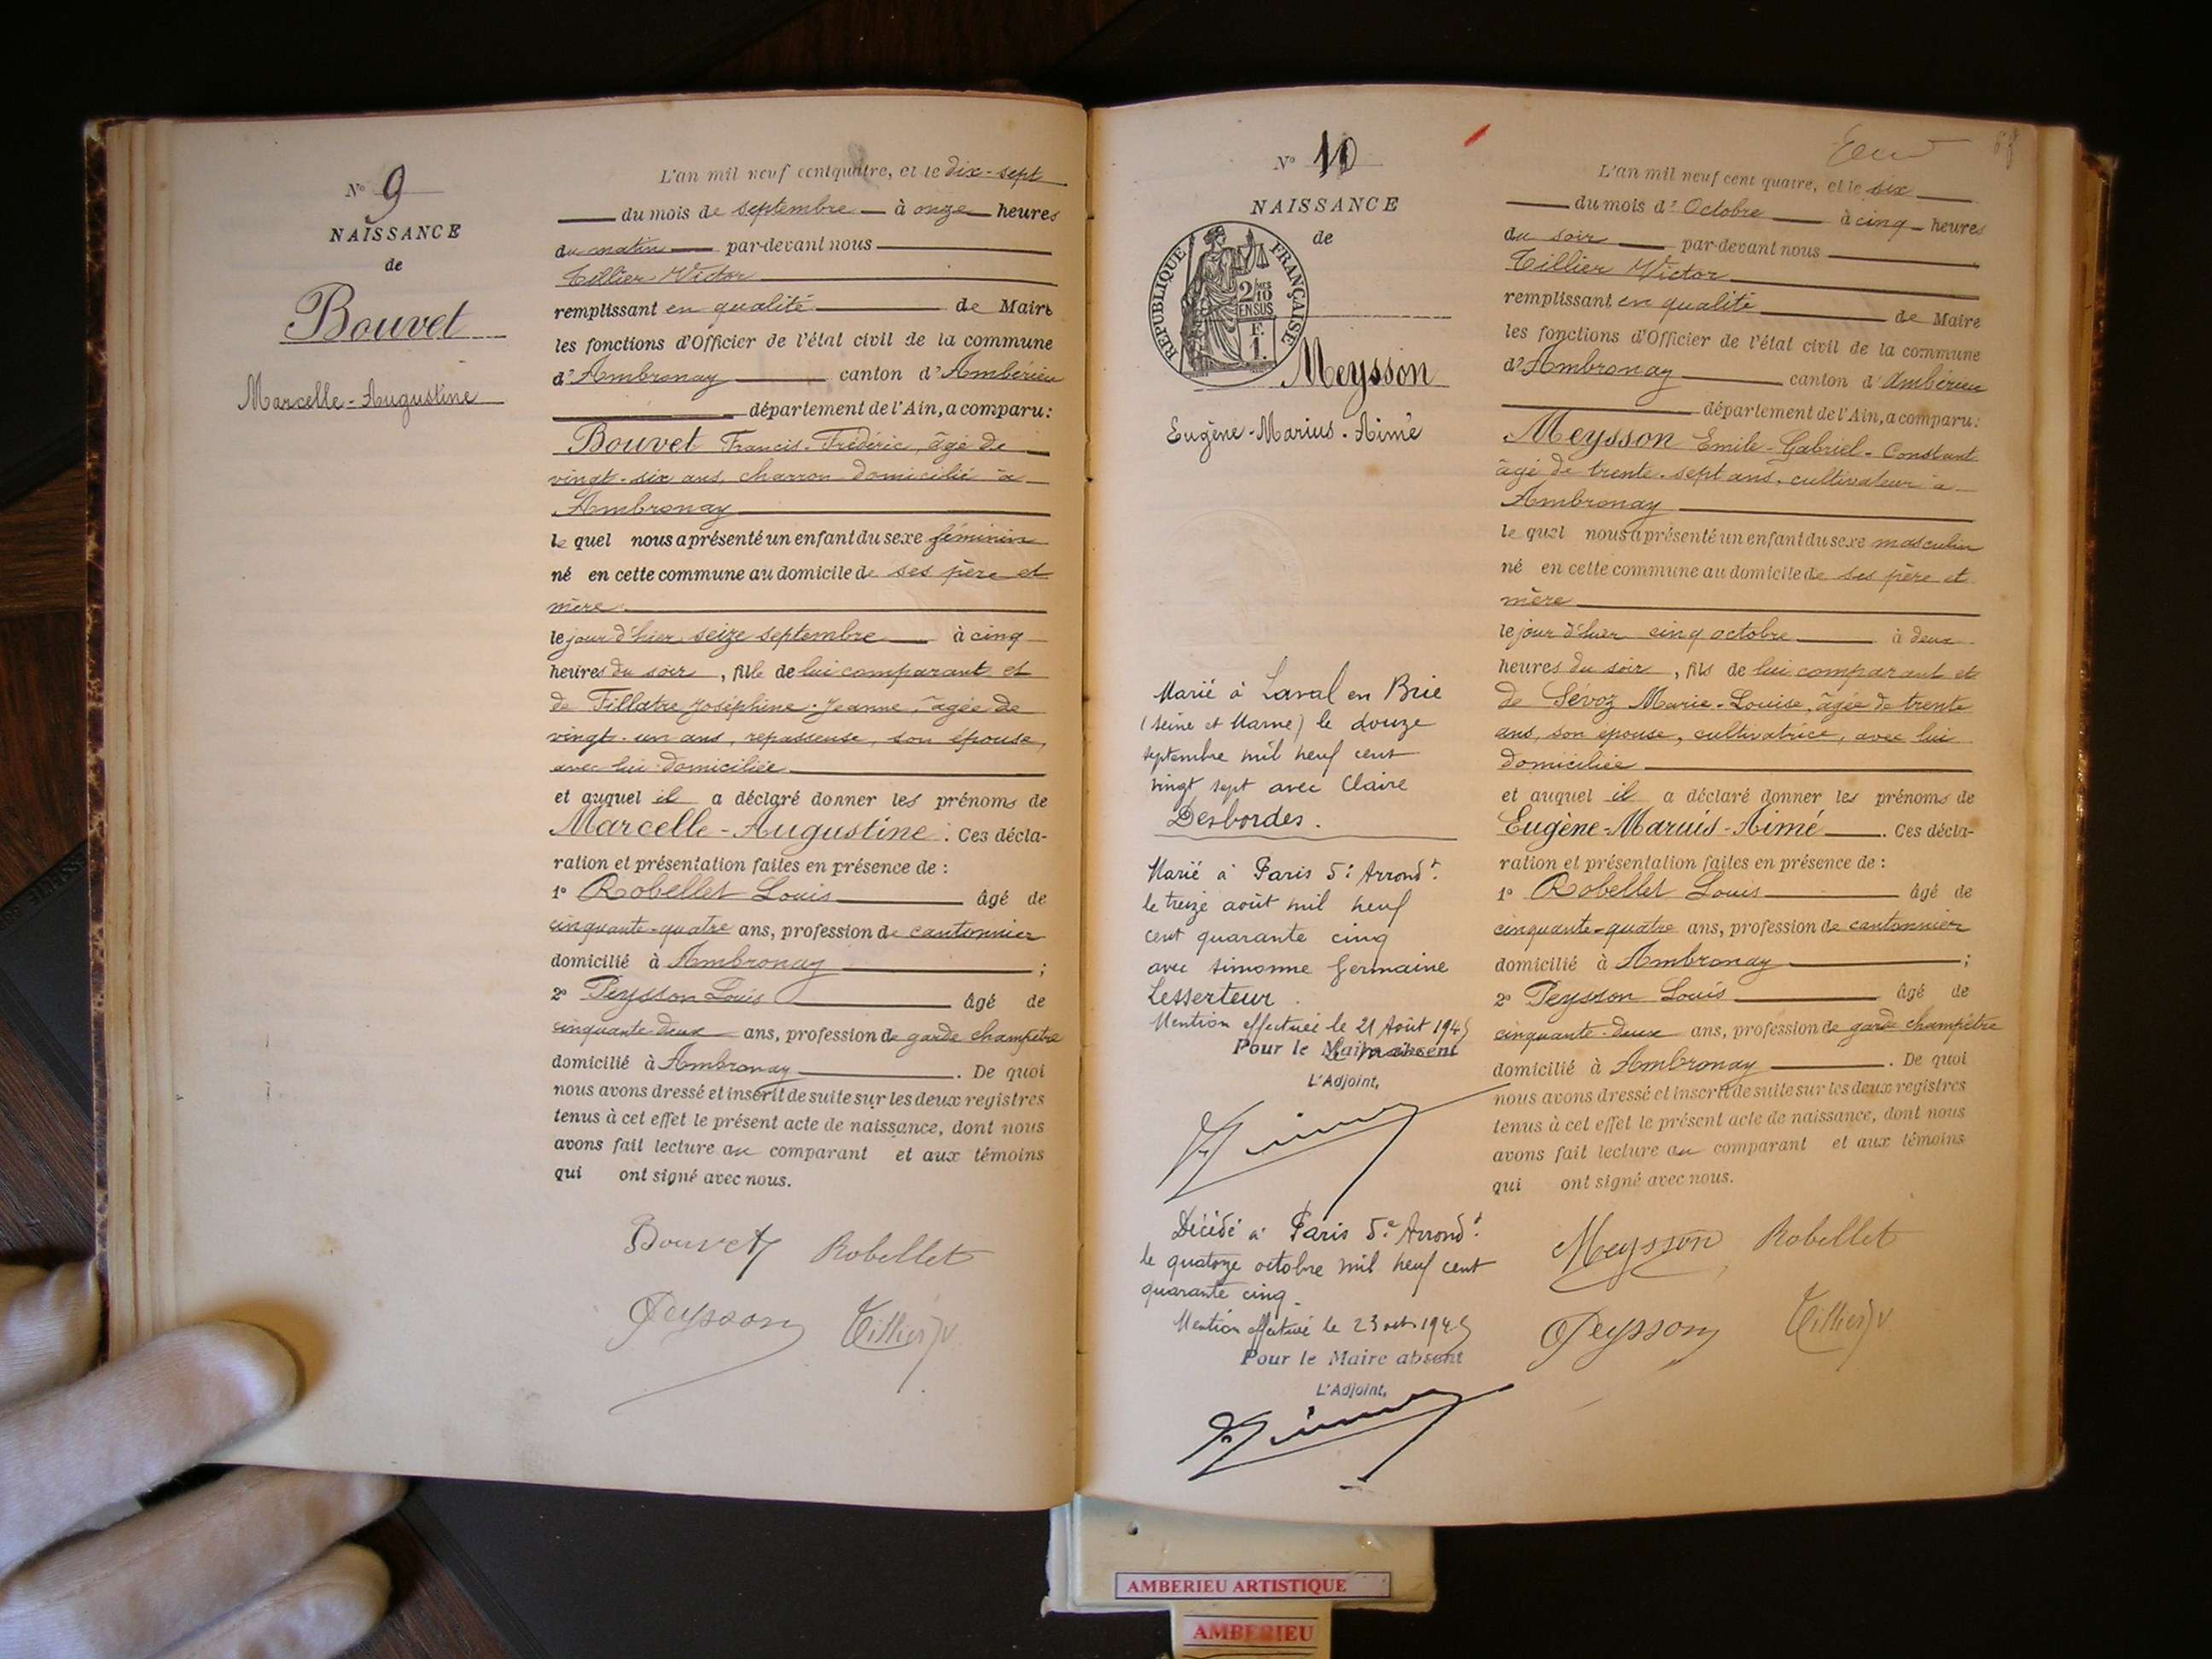 N° 9
NAISSANCE
de
Bouvet
Marcelle-Augustine
L'an mil neuf cent quatre, et le dix-sept
du mois de septembre à onze heures
du matin par-devant nous
Tillier Victor
remplissant en qualité de Maire
les fonctions d'Officier de l'état civil de la commune
d'Ambronay canton d'Ambérieu
département de l'Ain, a comparu:
Bouvet Francis-Frédéric, âgé de
vingt-six ans, charron domicilié à
Ambronay
le quel nous a présenté un enfant du sexe féminin
né en cette commune au domicile de ses père et
mère
le jour d'hier seize septembre à cinq
heures du soir, fille de lui comparant et
de Fillatre Joséphine-Jeanne, âgée de
vingt-un ans, repasseuse, son épouse,
avec lui domiciliée
et auquel il a déclaré donner les prénoms de
Marcelle-Augustine. Ces décla-
ration et présentation faites en présence de :
1° Robellet Louis âgé de
cinquante-quatre ans, profession de cantonnier
domicilié à Ambronay ;
2° Peysson Louis âgé de
cinquante-deux ans, profession de garde champêtre
domicilié à Ambronay. De quoi
nous avons dressé et inscrit de suite sur les deux registres
tenus à cet effet le présent acte de naissance, dont nous
avons fait lecture au comparant et aux témoins
qui ont signé avec nous.
Bouvet Robellet
Peysson Tillier V
N° 10
NAISSANCE
de
REPUBLIQUE FRANÇAISE
2/10
EN SUS
F.
1.
Meysson
Eugène-Marius-Aimé
Marié à Laval en Brie
(Seine et Marne) le douze
septembre mil neuf cent
vingt sept avec Claire
Desbordes.
Marié à Paris 5e Arrondt.
le treize août mil neuf
cent quarante cinq
avec Simonne Germaine
Lesserteur.
Mention effectuée le 21 Août 1945
Pour le Maire absent
L'Adjoint,
Décédé à Paris 5e Arrondt.
le quatorze octobre mil neuf cent
quarante cinq.
Mention effectuée le 23 oct 1945
Pour le Maire absent
L'Adjoint,
L'an mil neuf cent quatre, et le six
du mois d'Octobre à cinq heures
du soir par-devant nous
Tillier Victor
remplissant en qualité de Maire
les fonctions d'Officier de l'état civil de la commune
d'Ambronay canton d'Ambérieu
département de l'Ain, a comparu:
Meysson Emile-Gabriel-Constant
âgé de trente-sept ans, cultivateur à
Ambronay
le quel nous a présenté un enfant du sexe masculin
né en cette commune au domicile de ses père et
mère
le jour d'hier cinq octobre à deux
heures du soir, fils de lui comparant et
de Sévoz Marie-Louise, âgée de trente
ans, son épouse, cultivatrice, avec lui
domiciliée
et auquel il a déclaré donner les prénoms de
Eugène-Maruis-Aimé. Ces décla-
ration et présentation faites en présence de :
1° Robellet Louis âgé de
cinquante-quatre ans, profession de cantonnier
domicilié à Ambronay ;
2° Peysson Louis âgé de
cinquante-deux ans, profession de garde champêtre
domicilié à Ambronay. De quoi
nous avons dressé et inscrit de suite sur les deux registres
tenus à cet effet le présent acte de naissance, dont nous
avons fait lecture au comparant et aux témoins
qui ont signé avec nous.
Meysson Robellet
Peysson Tillier V
AMBERIEU ARTISTIQUE
AMBERIEU